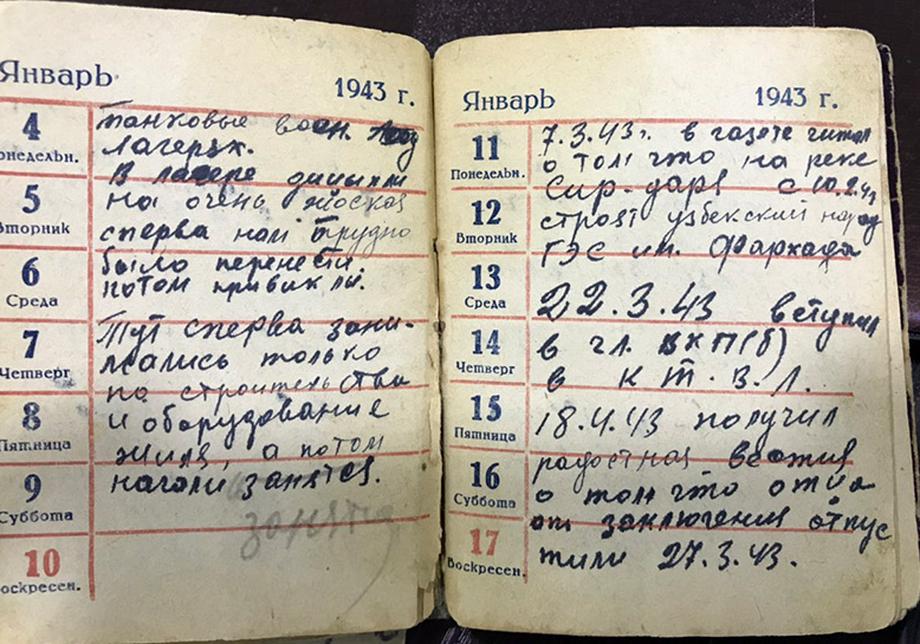 Январь 1943 г.
4
онедельн.
5
Вторник
6
Среда
7
Четверг
8
Пятница
9
Суббота
10
оскресен.
танковые воен.
лагерях.
В лагере дицыплин
на очень жоская
сперва нам трудно
было перенести
потом привикли.
Тут сперва зани-
мались только
по строительства
и оборудование
жиля, а потом
начали занятея.
занятия
Январь 1943 г.
11
Понедельн.
12
Вторник
13
Среда
14
Четверг
15
Пятница
16
Суббота
17
Воскресен.
7.3.43г. в газете читал
о том что на реке
Сир-даря с
строят узбекский народ
ГЭС им. Фархада
22.3.43 вступил
в чл. ВКП(б)
в К Т. В. Л.
18.4.43 получил
радостная
о том что отца
от заключения отпус
тили 27.3.43.